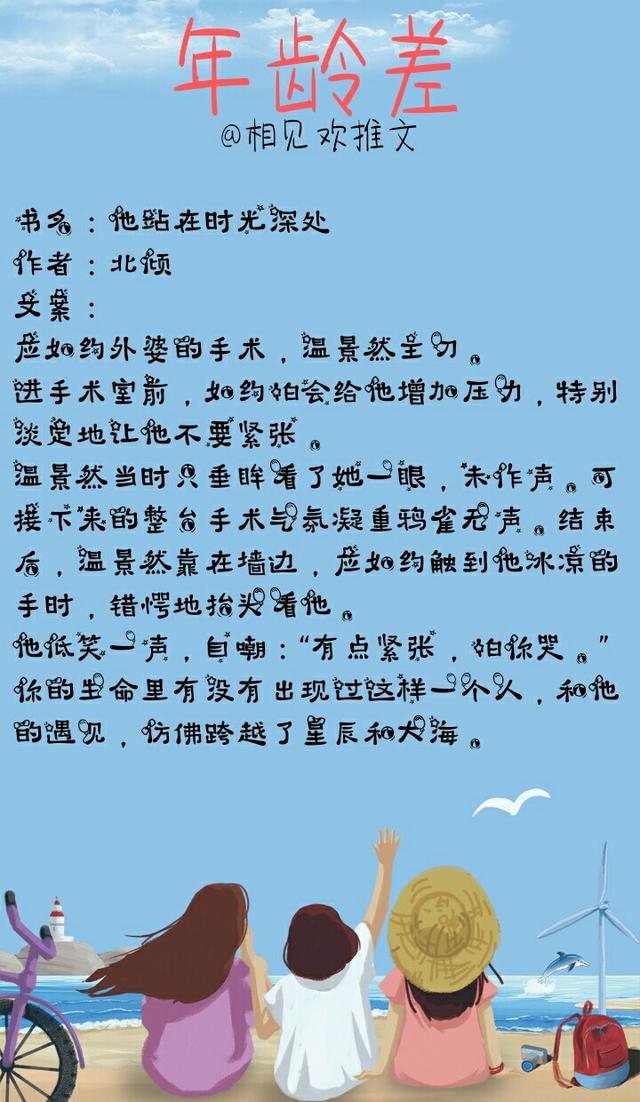 年龄差
@相见欢推文
书名：他站在时光深处
作者：北倾
文案：
应如约外婆的手术，温景然主刀。
进手术室前，如约怕会给他增加压力，特别
淡定地让他不要紧张。
温景然当时只垂眸看了她一眼，未作声。可
接下来的整台手术气氛凝重鸦雀无声。结束
后，温景然靠在墙边，应如约触到他冰凉的
手时，错愕地抬头看他。
他低笑一声，自嘲：“有点紧张，怕你哭。”
你的生命里有没有出现过这样一个人，和他
的遇见，仿佛跨越了星辰和大海。